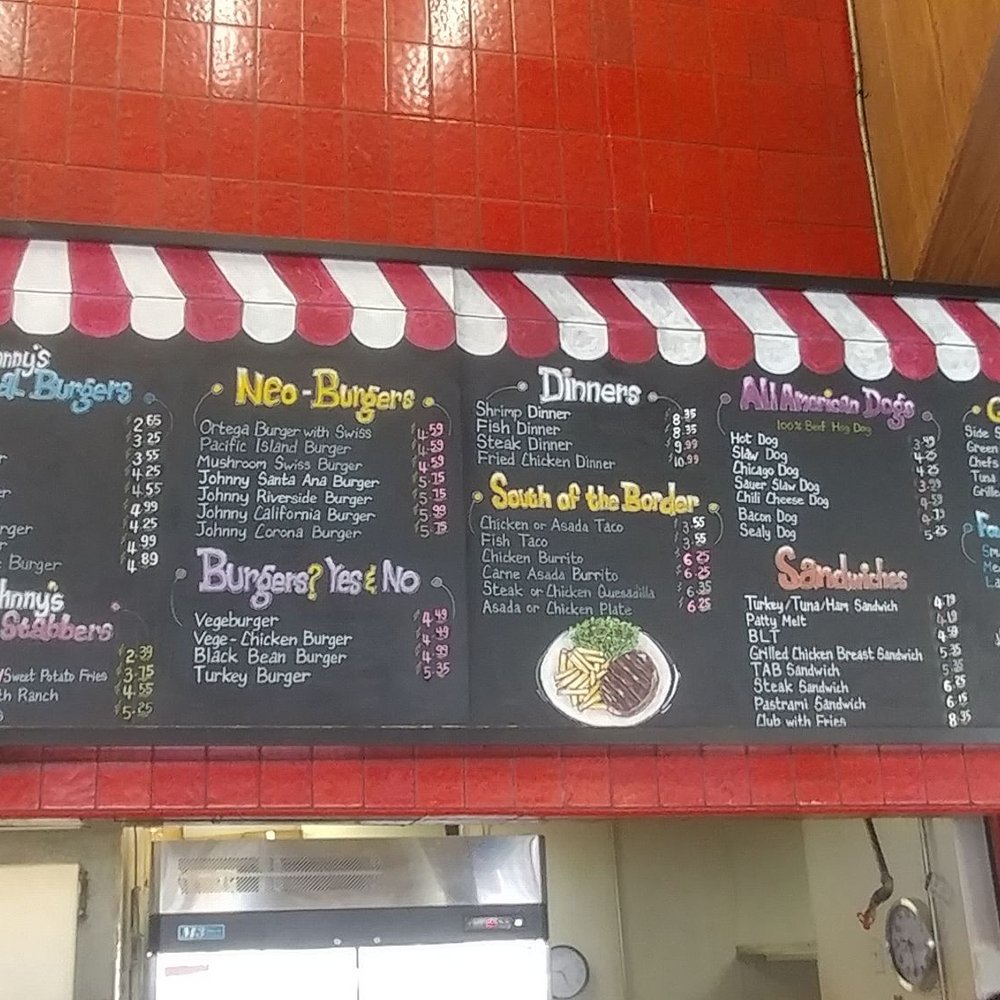 nny's
al Burgers
2.65
3.25
3.55
4.25
4.55
4.99
4.25
4.99
Burger 4.89
hnny's
Stabbers
2.39
/Sweet Potato Fries 3.75
th Ranch 4.55
5.25
Neo-Burgers
Ortega Burger with Swiss 4.59
Pacific Island Burger 4.59
Mushroom Swiss Burger 4.59
Johnny Santa Ana Burger 5.75
Johnny Riverside Burger 5.75
Johnny California Burger 5.99
Johnny Corona Burger 5.75
Burgers? Yes & No
Vegeburger 4.49
Vege-Chicken Burger 4.49
Black Bean Burger 4.99
Turkey Burger 5.35
Dinners
Shrimp Dinner 8.35
Fish Dinner 8.35
Steak Dinner 9.99
Fried Chicken Dinner 10.99
South of the Border
Chicken or Asada Taco 3.55
Fish Taco 3.55
Chicken Burrito 6.25
Carne Asada Burrito 6.25
Steak or Chicken Quesadilla 6.35
Asada or Chicken Plate 6.25
All American Dogs
100% Beef Hog Dog
Hot Dog
Slaw Dog 4.25
Chicago Dog 4.25
Sauer Slaw Dog
Chili Cheese Dog
Bacon Dog
Sealy Dog 5.25
Sandwiches
Turkey/Tuna/Ham Sandwich 4.79
Patty Melt
BLT 4.59
Grilled Chicken Breast Sandwich 5.35
TAB Sandwich
Steak Sandwich 6.25
Pastrami Sandwich 6.15
Club with Fries 8.35
Side S
Green
Chefs
Tuna
Grille